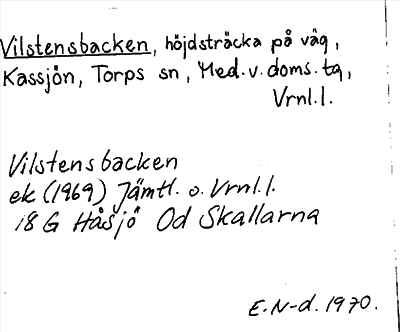 Vilstensbacken, höjdsträcka på väg,
Kassjön, Torps sn, Med.v.doms.tg,
Vrnl.l.
Vilstensbacken
ek (1969) Jämtl. o. Vrnl.l.
18 G Håsjö Od Skallarna
E.N-d. 1970.